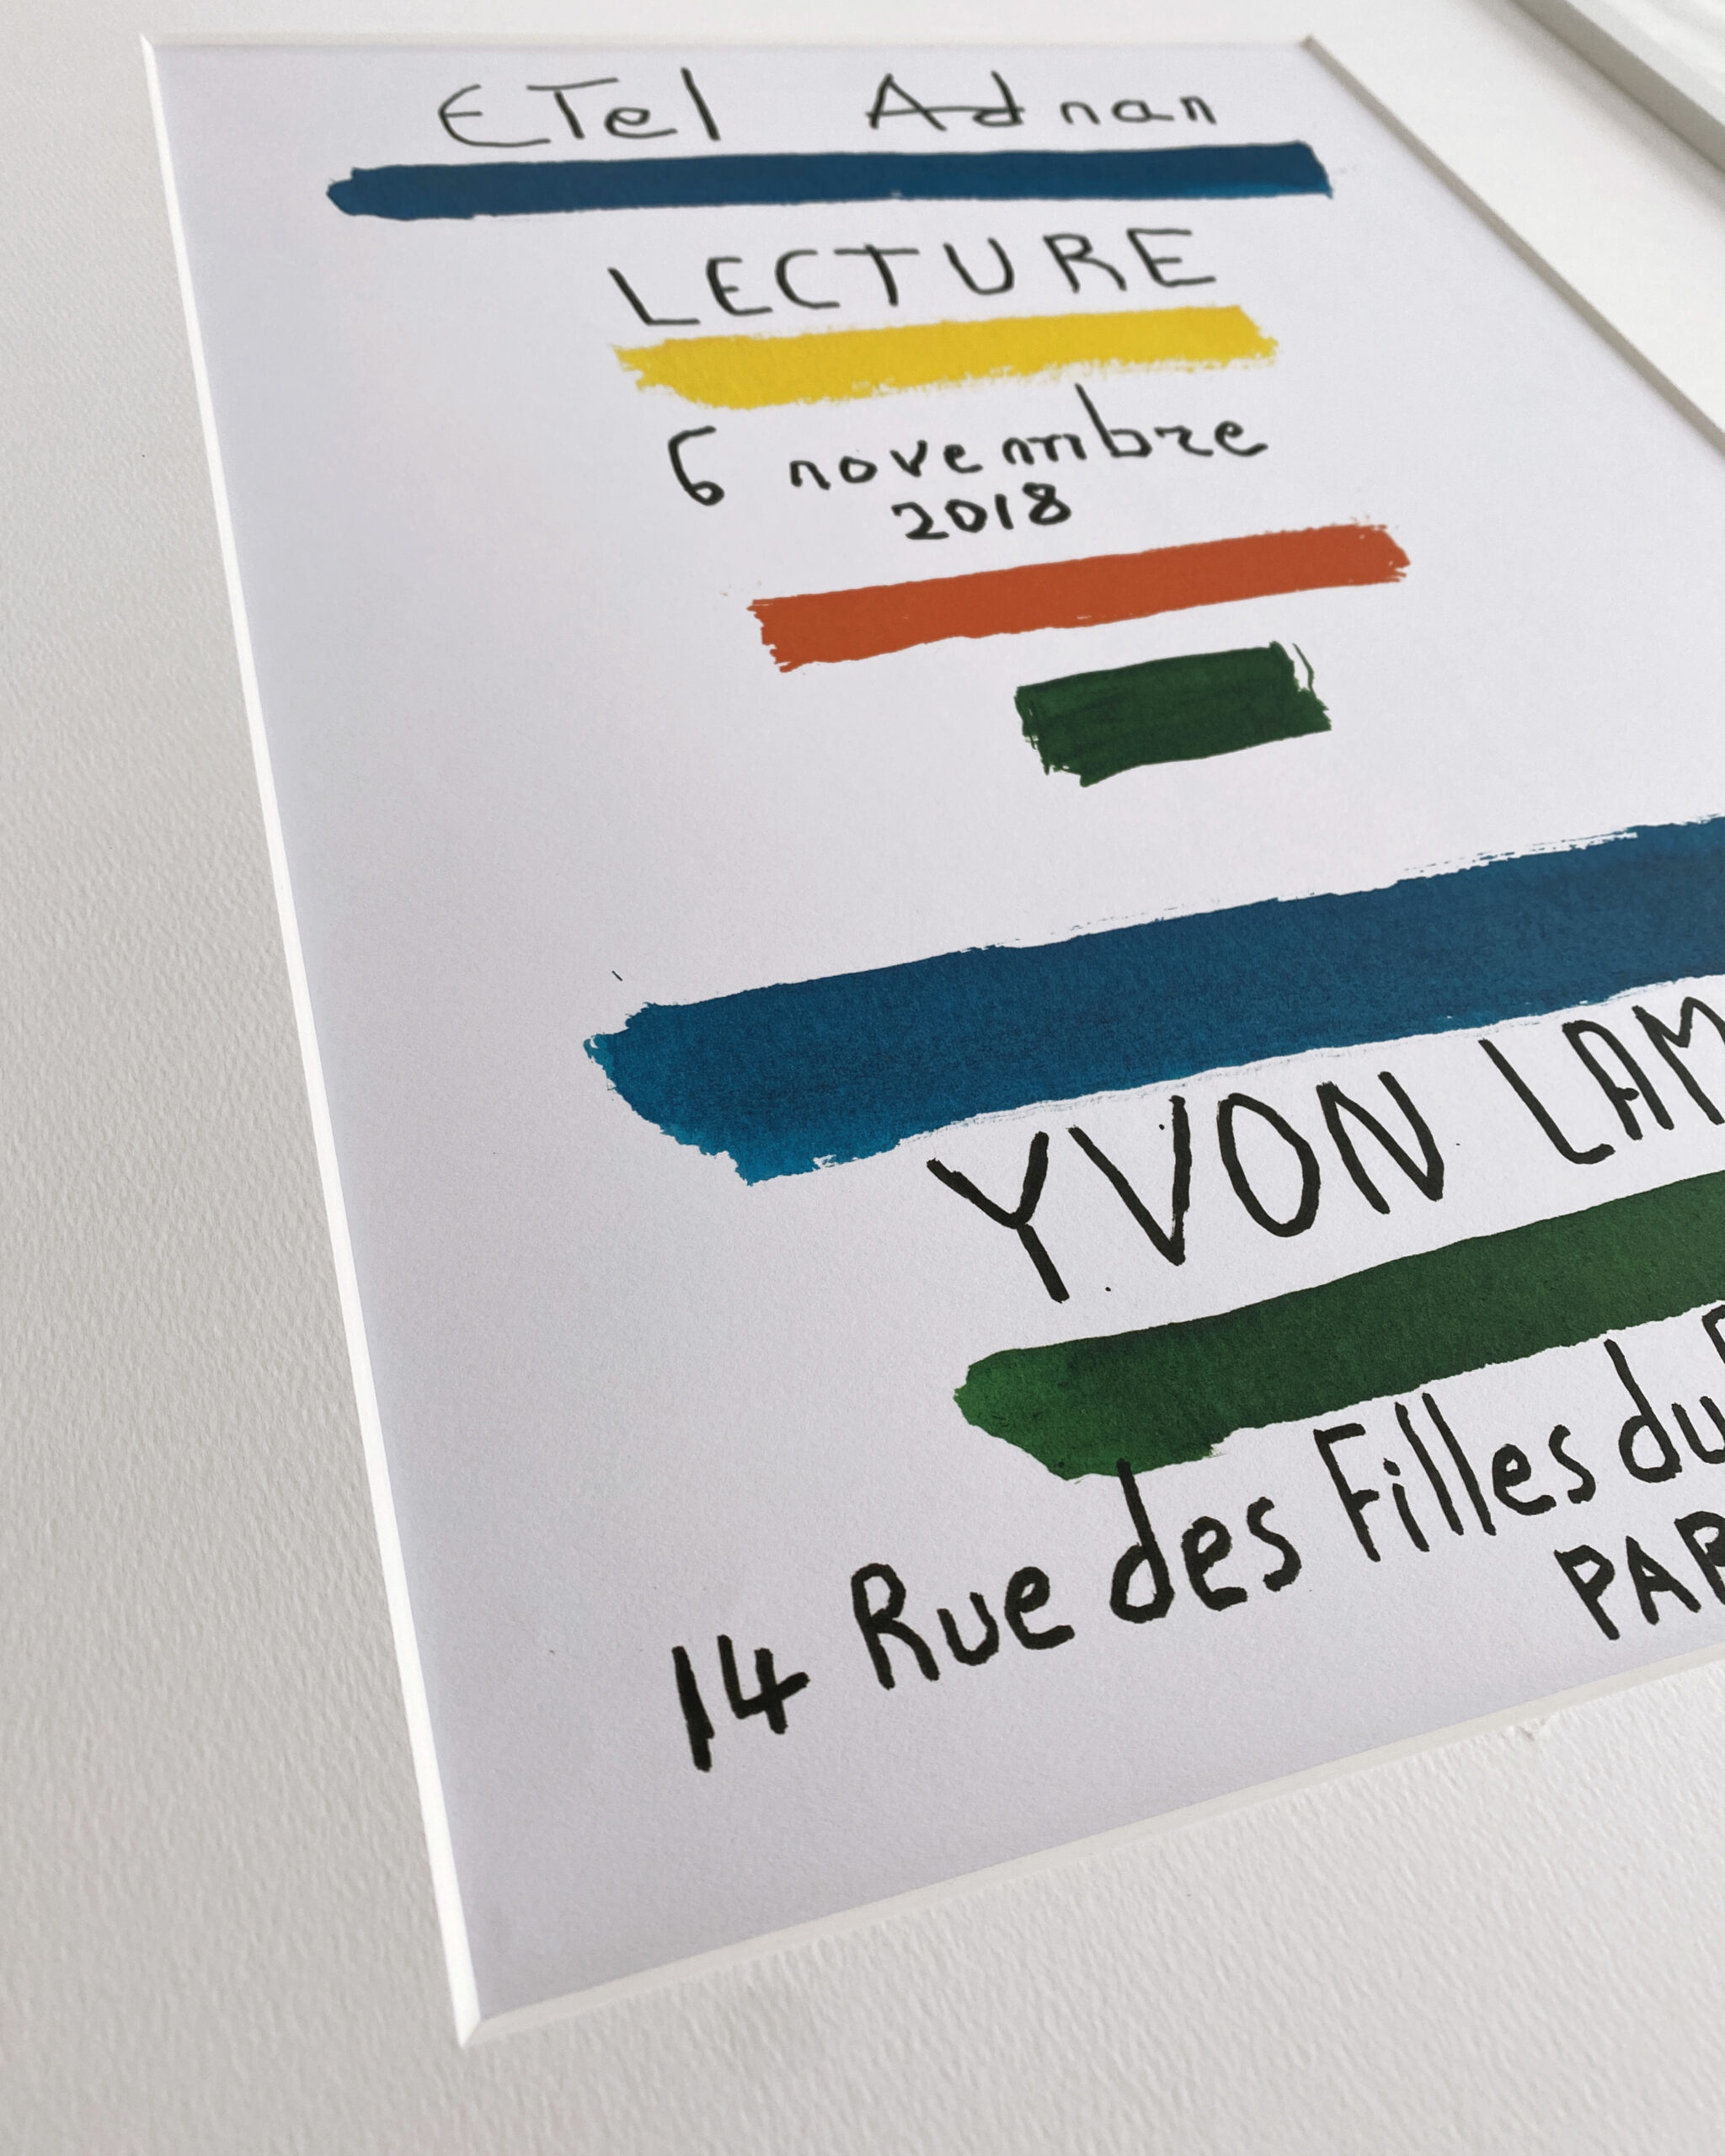 ETel Adnan
LECTURE
6 novembre
2018
YVON LAM
14 Rue des Filles du
PAR